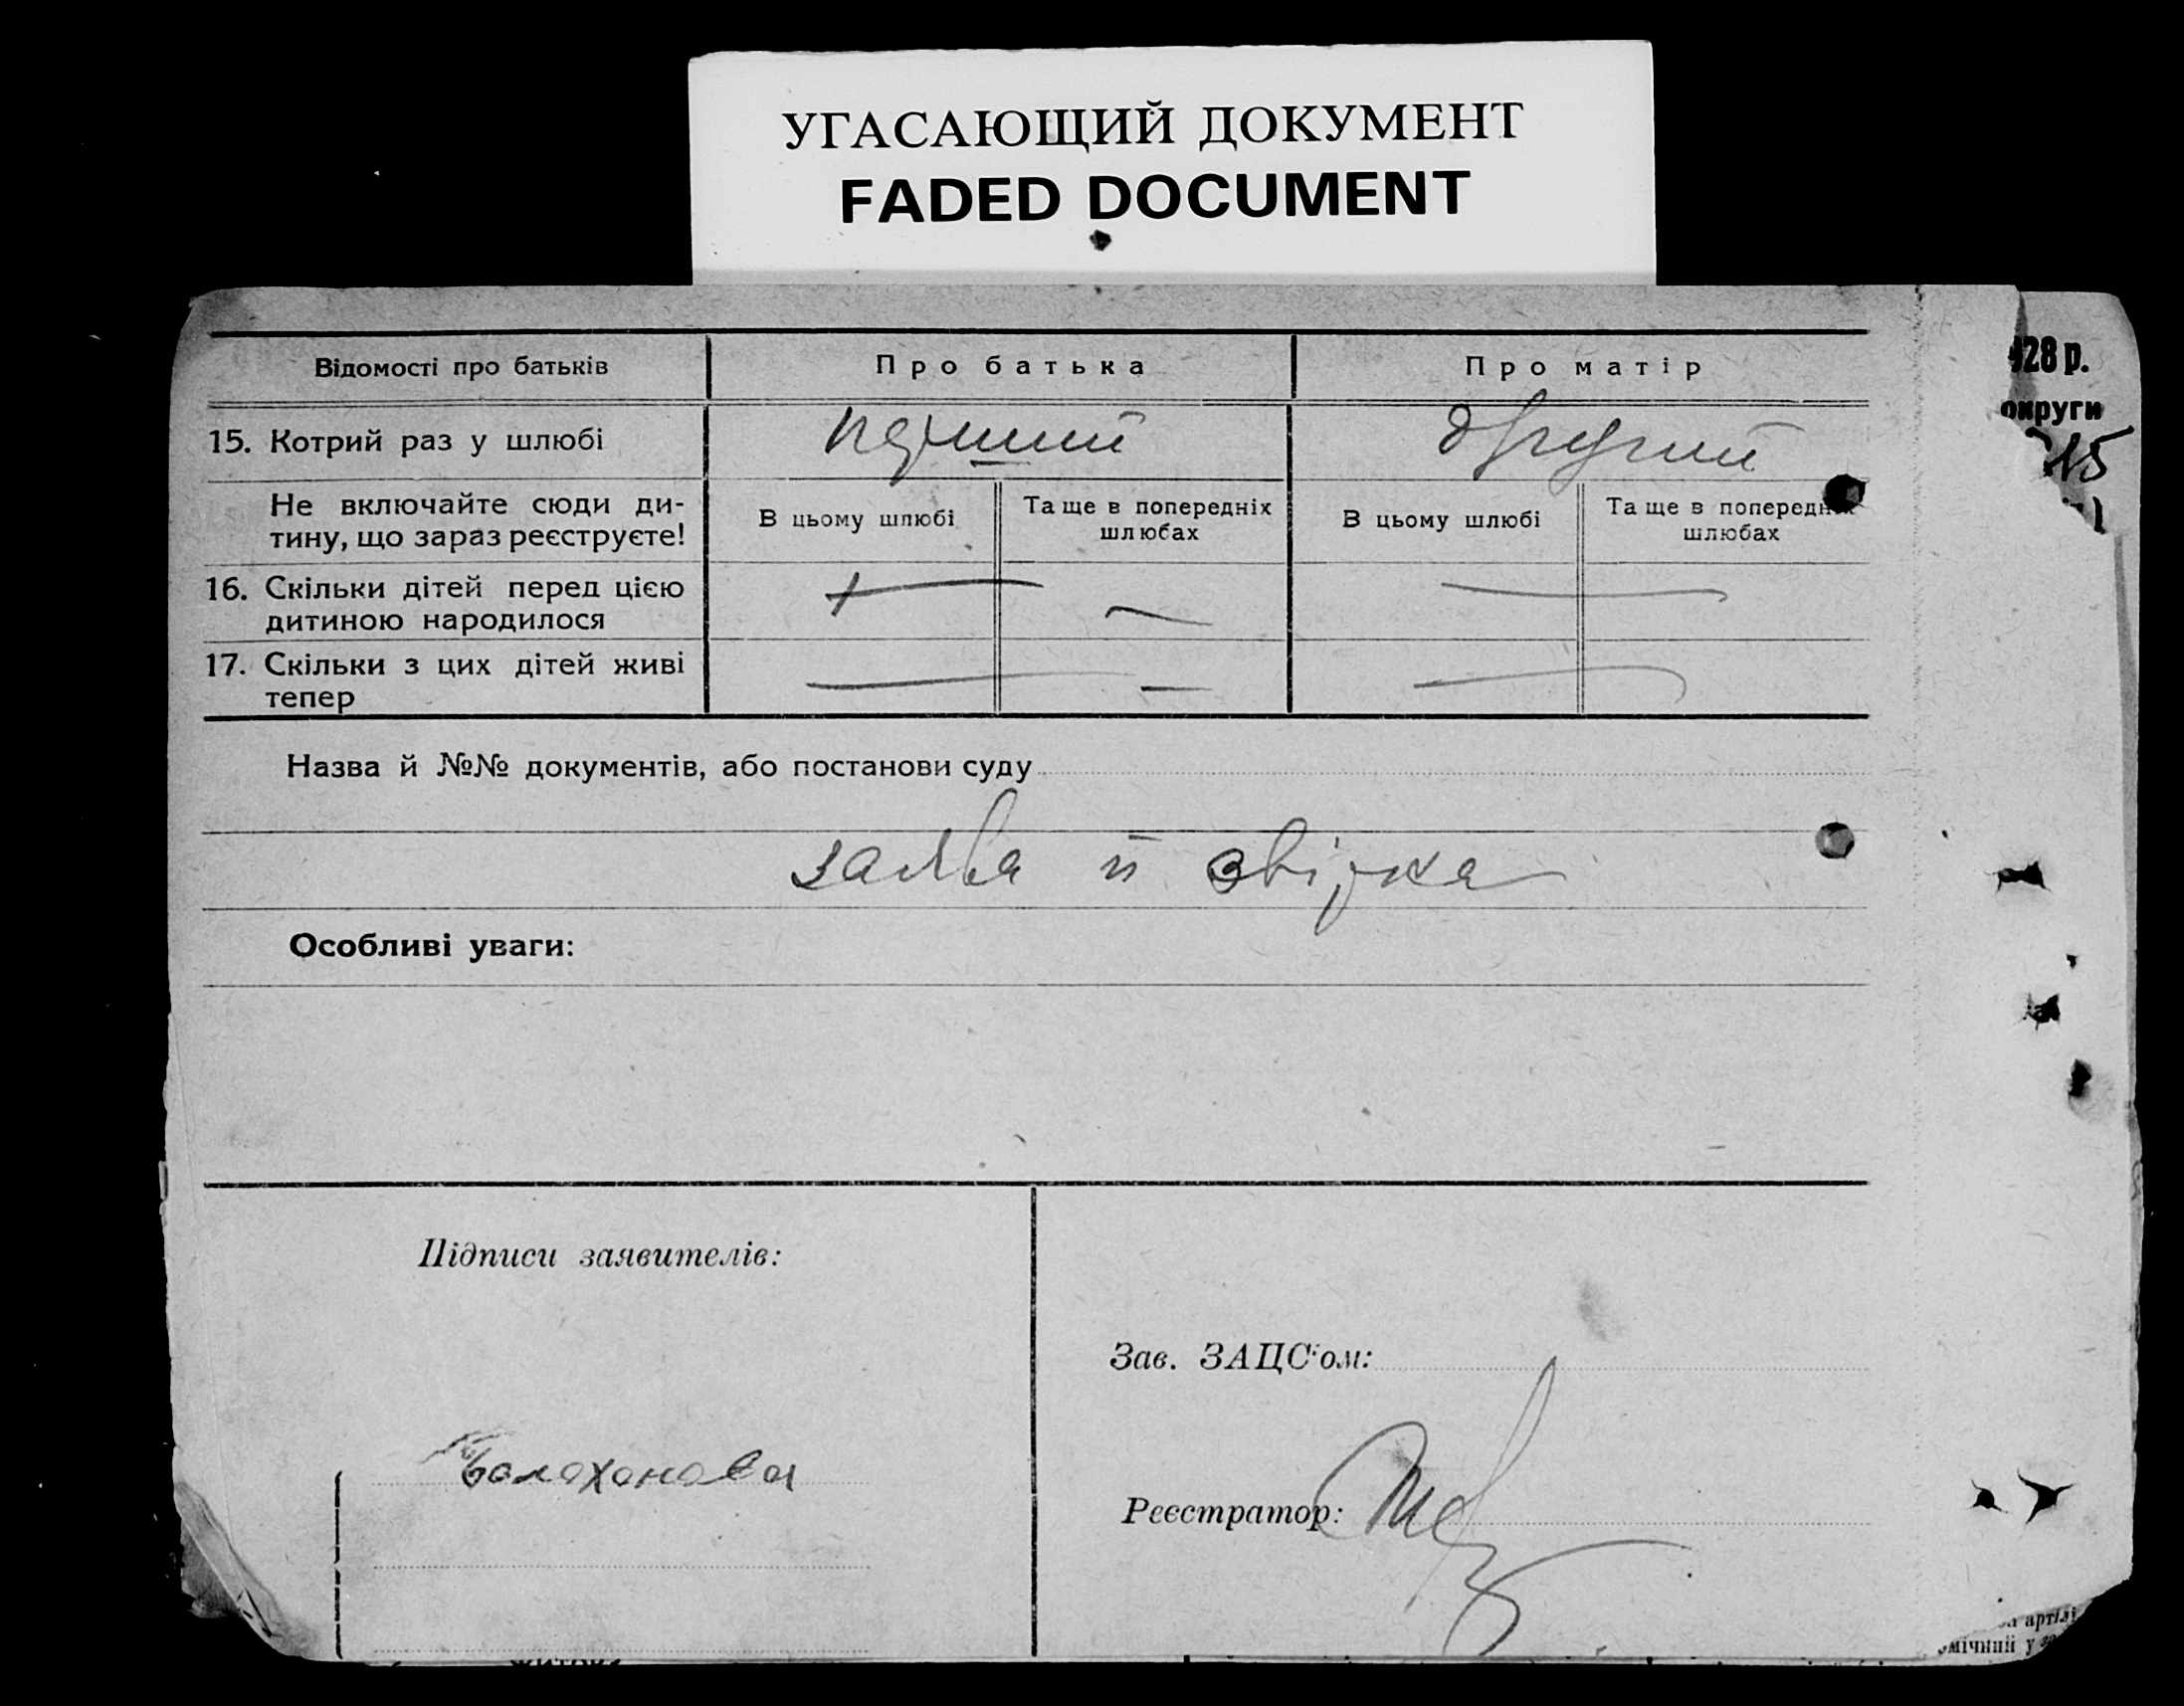 УГАСАЮЩИЙ ДОКУМЕНТ
FADED DOCUMENT
Відомості про батьків
Про батька
Про матір
15. Котрий раз у шлюбі
перший
другий
Не включайте сюди ди-
тину, що зараз реєструєте!
В цьому шлюбі
Та ще в попередніх
шлюбах
В цьому шлюбі
Та ще в попередніх
шлюбах
16. Скільки дітей перед цією
дитиною народилося
17. Скільки з цих дітей живі
тепер
Назва й №№ документів, або постанови суду
заява й звірка
Особливі уваги:
Підписи заявителів:
Балаханова
Зав. ЗАЦС'ом:
Реєстратор:
928 р.
округи
артілі